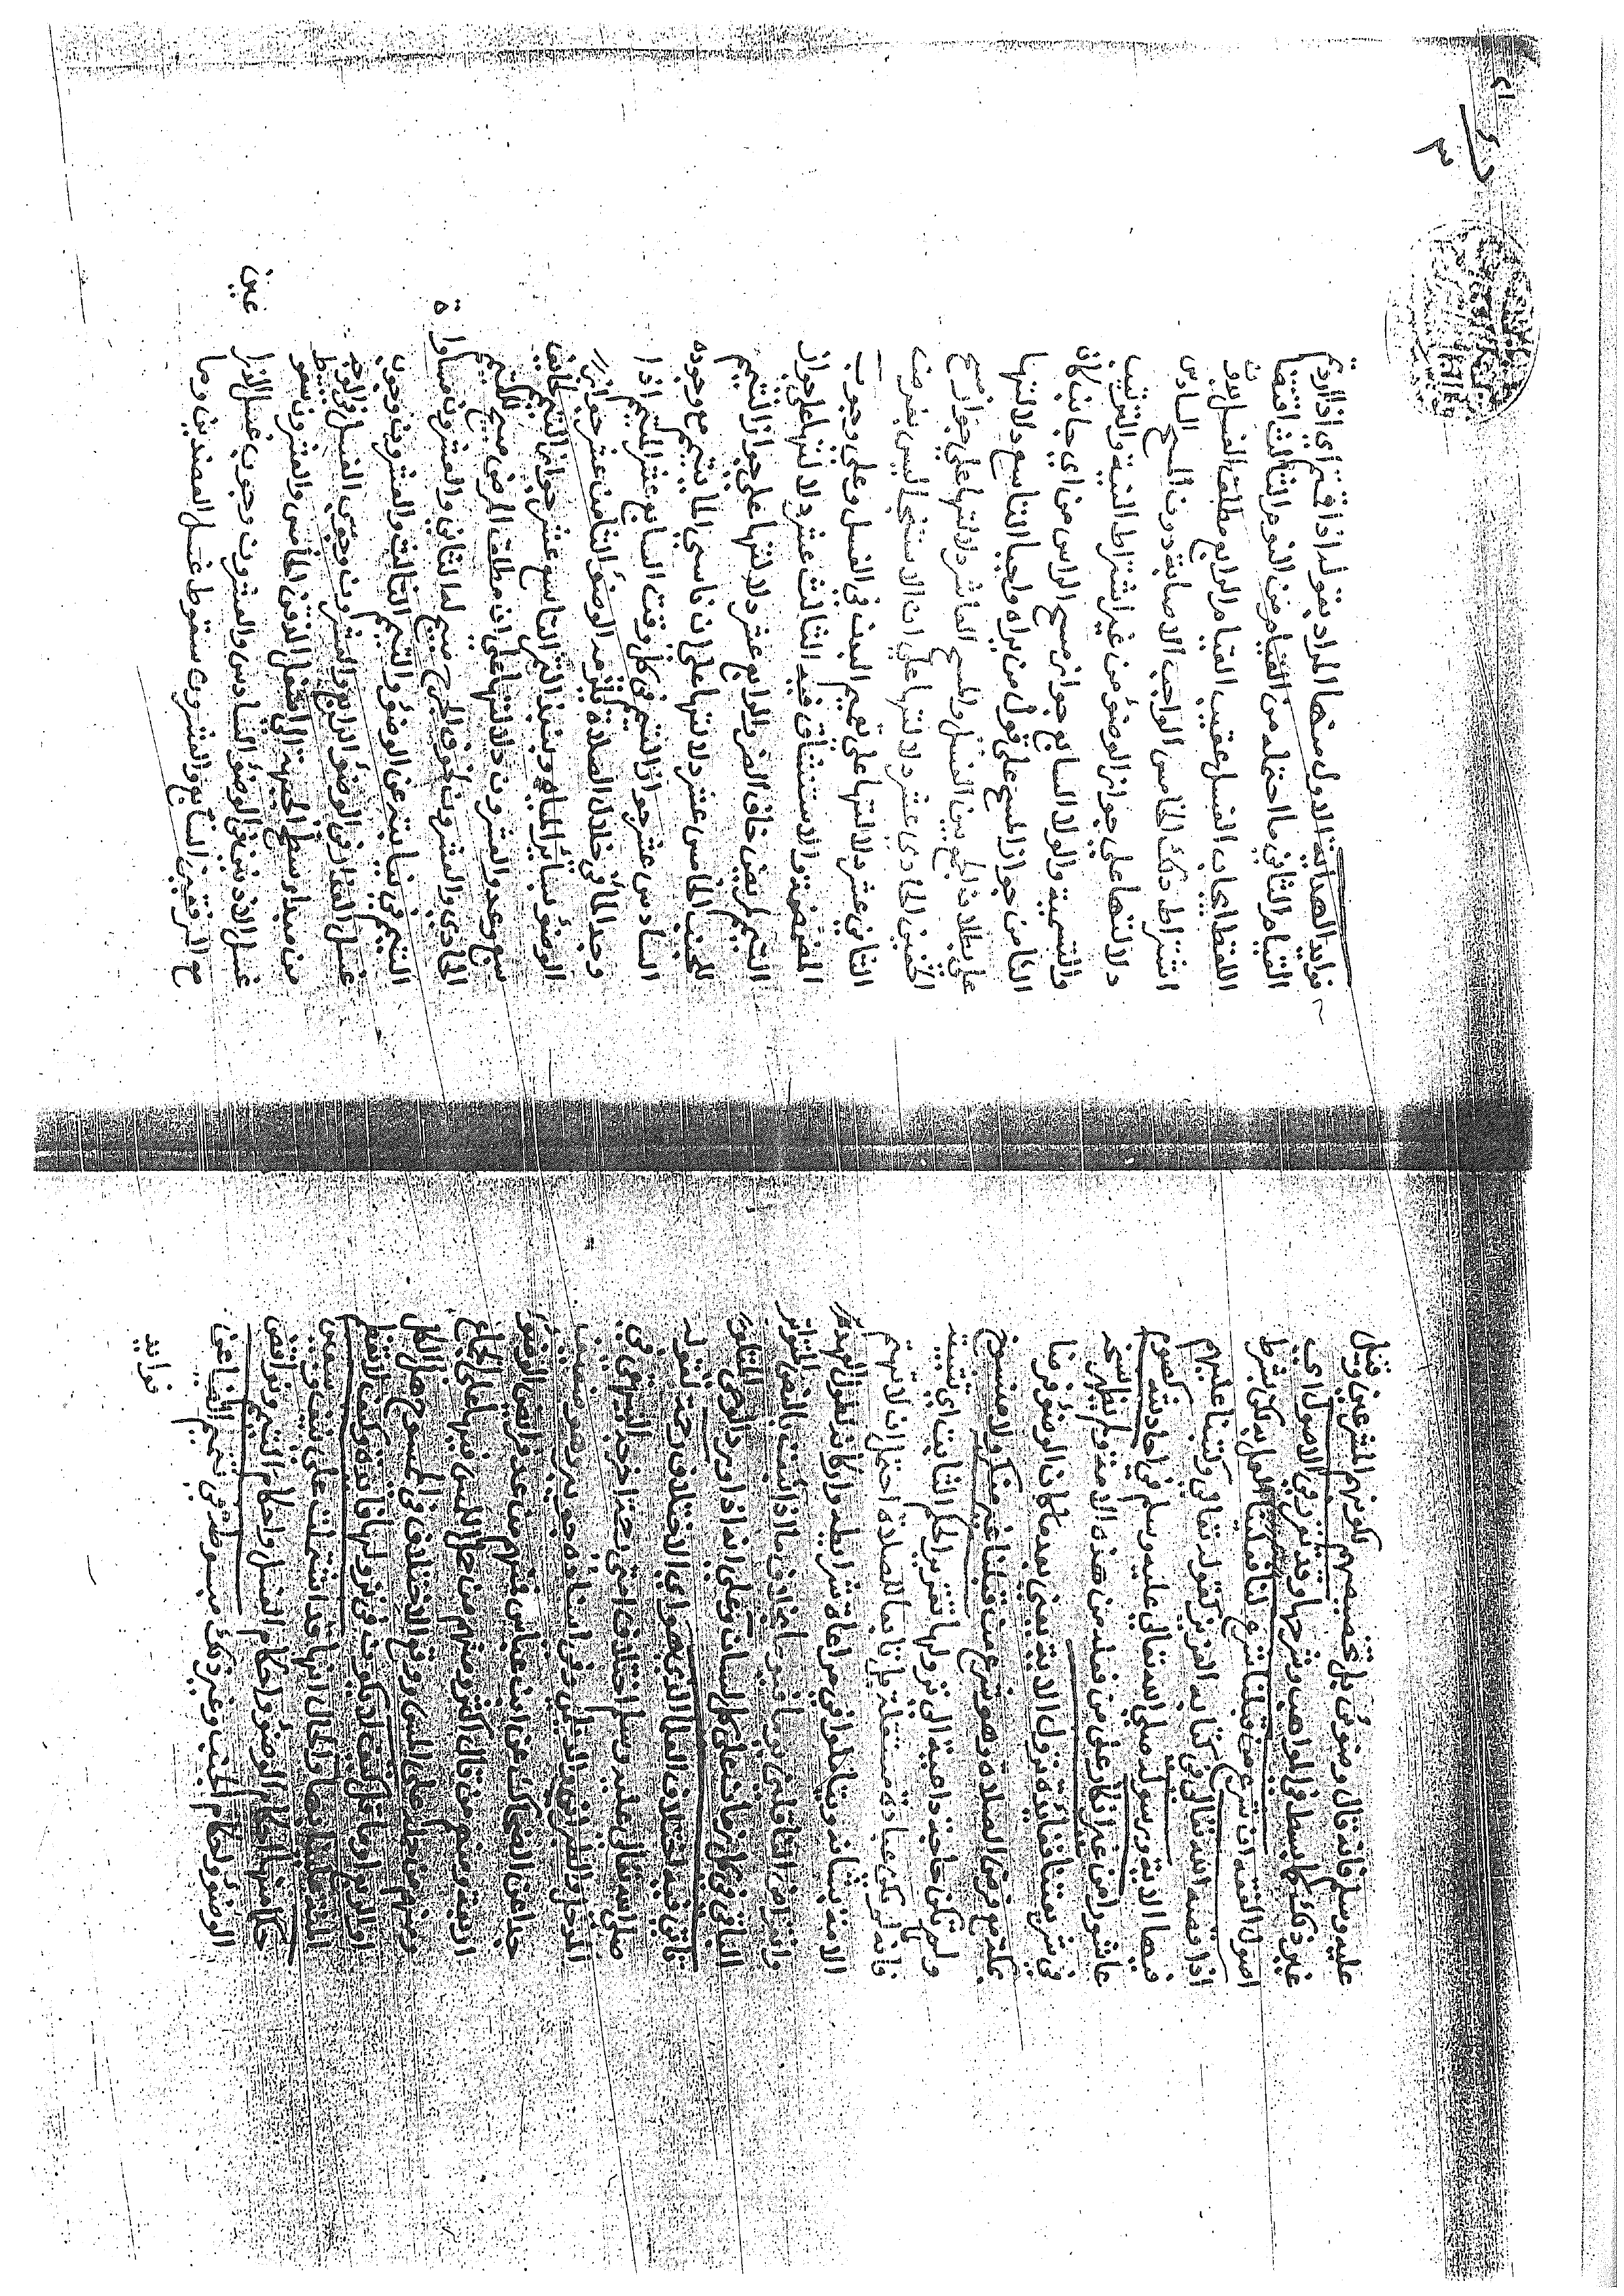 عليه وسلم فانه قال وضوئي بل تخصيصهم بكونهم المشرعين وقيل
غير ذلك كما بسط في المواهب وشرحها وقد تقرر في الاصول اي
اصول الفقه ان شرع من قبلنا شرع لنا فيكتفى بالعمل به لكن بشرط
اذا قصه الله تعالى في كتابه العزيز كقوله تعالى وكتبنا عليهم
فيها الاية ورسوله صلى الله تعالى عليه وسلم في احاديثه كصوم
عاشوراء من غير انكار على من قبله من هذه الامة ولم يظهر نسخه
في شريعتنا ففائدة نزول الاية يعني بعد ما كان الوضوء فرضا
بمكة مع فرض الصلاة وهو شرع من قبلنا غير منكر ولا منسوخ
ولم تكن حاجة داعية الى نزولها تقرير الحكم الثابت اي تثبيته
فانه لو لم يكن عبادة مستقلة بل تابعا للصلاة احتمل ان لا تهتم
الامة بشانه ويتساهلوا في مراعاة شرايطه واركانه لطول العهد
وانتراض الناقلين يوما فيوما بخلاف ما اذا ثبت بالنص المتواتر
الباقي في كل زمان على كل لسان وعلى انه اذا ورد الوحي المتلو
تاتي فيه اختلاف العلماء الذي هو اي الاختلاف رحمة لقوله
صلى الله تعالى عليه وسلم اختلاف امتي رحمة اخرجه البيهقي في
المدخل والطبراني والديلمي وفي اسناده جويبر وهو ضعيف
جدا عن الضحاك عن ابن عباس فمنهم من عد فرايض الوضوء
اربعة ومنهم من قال اكثر ومنهم من حمل اللمس فيها على الجماع
ومنهم من حمله على المس ووقع الاختلاف في المسوح هل الكل
او الربع او ما قل كيف لا يكون في نزولها فايدة
للشرعية ايضا والحال انها قد اشتملت على نيف وسبعين
حكما منها احكام الوضوء واحكام الغسل واحكام التيمم ونواقض
الوضوء واحكام الجنب وغير ذلك مبسوطة في تيمم الضيا عن
فوايد
فوايد الهداية الاول منها المراد بقوله اذا قمتم اي اذا اردتم
القيام الثاني ما احتمله من القيام من النوم الثالث اقتضا
اللفظ ايجاب الغسل عقيب القيام الرابع مطلق الغسل بدون
اشتراط دلك الخامس الواجب الاصابة دون المسح السادس
دلالتها على جواز الوضوء من غير اشتراط النية والترتيب
والتسمية والولاء السابع جواز مسح الراس من اي جانب كان
الثامن جواز المسح على قول من يراه واجبا التاسع دلالتها
على بطلان الجمع بين الغسل والمسح العاشر دلالتها على جواز مسح
الخفين الحادي عشر دلالتها على ان الاستنجا ليس بفرض
الثاني عشر دلالتها على تعميم البدن في الغسل وعلى وجوب
المضمضة والاستنشاق فيه الثالث عشر دلالتها على جواز
التيمم لمريض خاف الضرر والرابع عشر دلالتها على جواز التيمم
للجنب الخامس عشر دلالتها على ان ناسي الماء يتيمم مع وجوده
السادس عشر جواز التيمم في كل وقت السابع عشر المتيمم اذا
وجد الماء في خلال الصلاة يلزمه الوضوء الثامن عشر جواز
الوضوء بسائر المياه ونبيذ التمر التاسع عشر جواز التيمم لخائف
سبع وعدو والعشرون دلالتها على ان مطلق المرض مبيح للتيمم
الحادي والعشرون الخوف الجرح مبيح له الثاني والعشرون مساواة
التيمم في نيابته عن الوضوء والتيمم الثالث والعشرون وجوب
غسل العذار في الوضوء الرابع والعشرون وجوب الغسل في الوجه
من مبدا وسطح الجبهة الى اسفل الذقن الخامس والعشرون سقوط
غسل الاذنين في الوضوء السادس والعشرون وجوب غسل الذراعين
مع المرفقين السابع والعشرون سقوط غسل العضدين وما